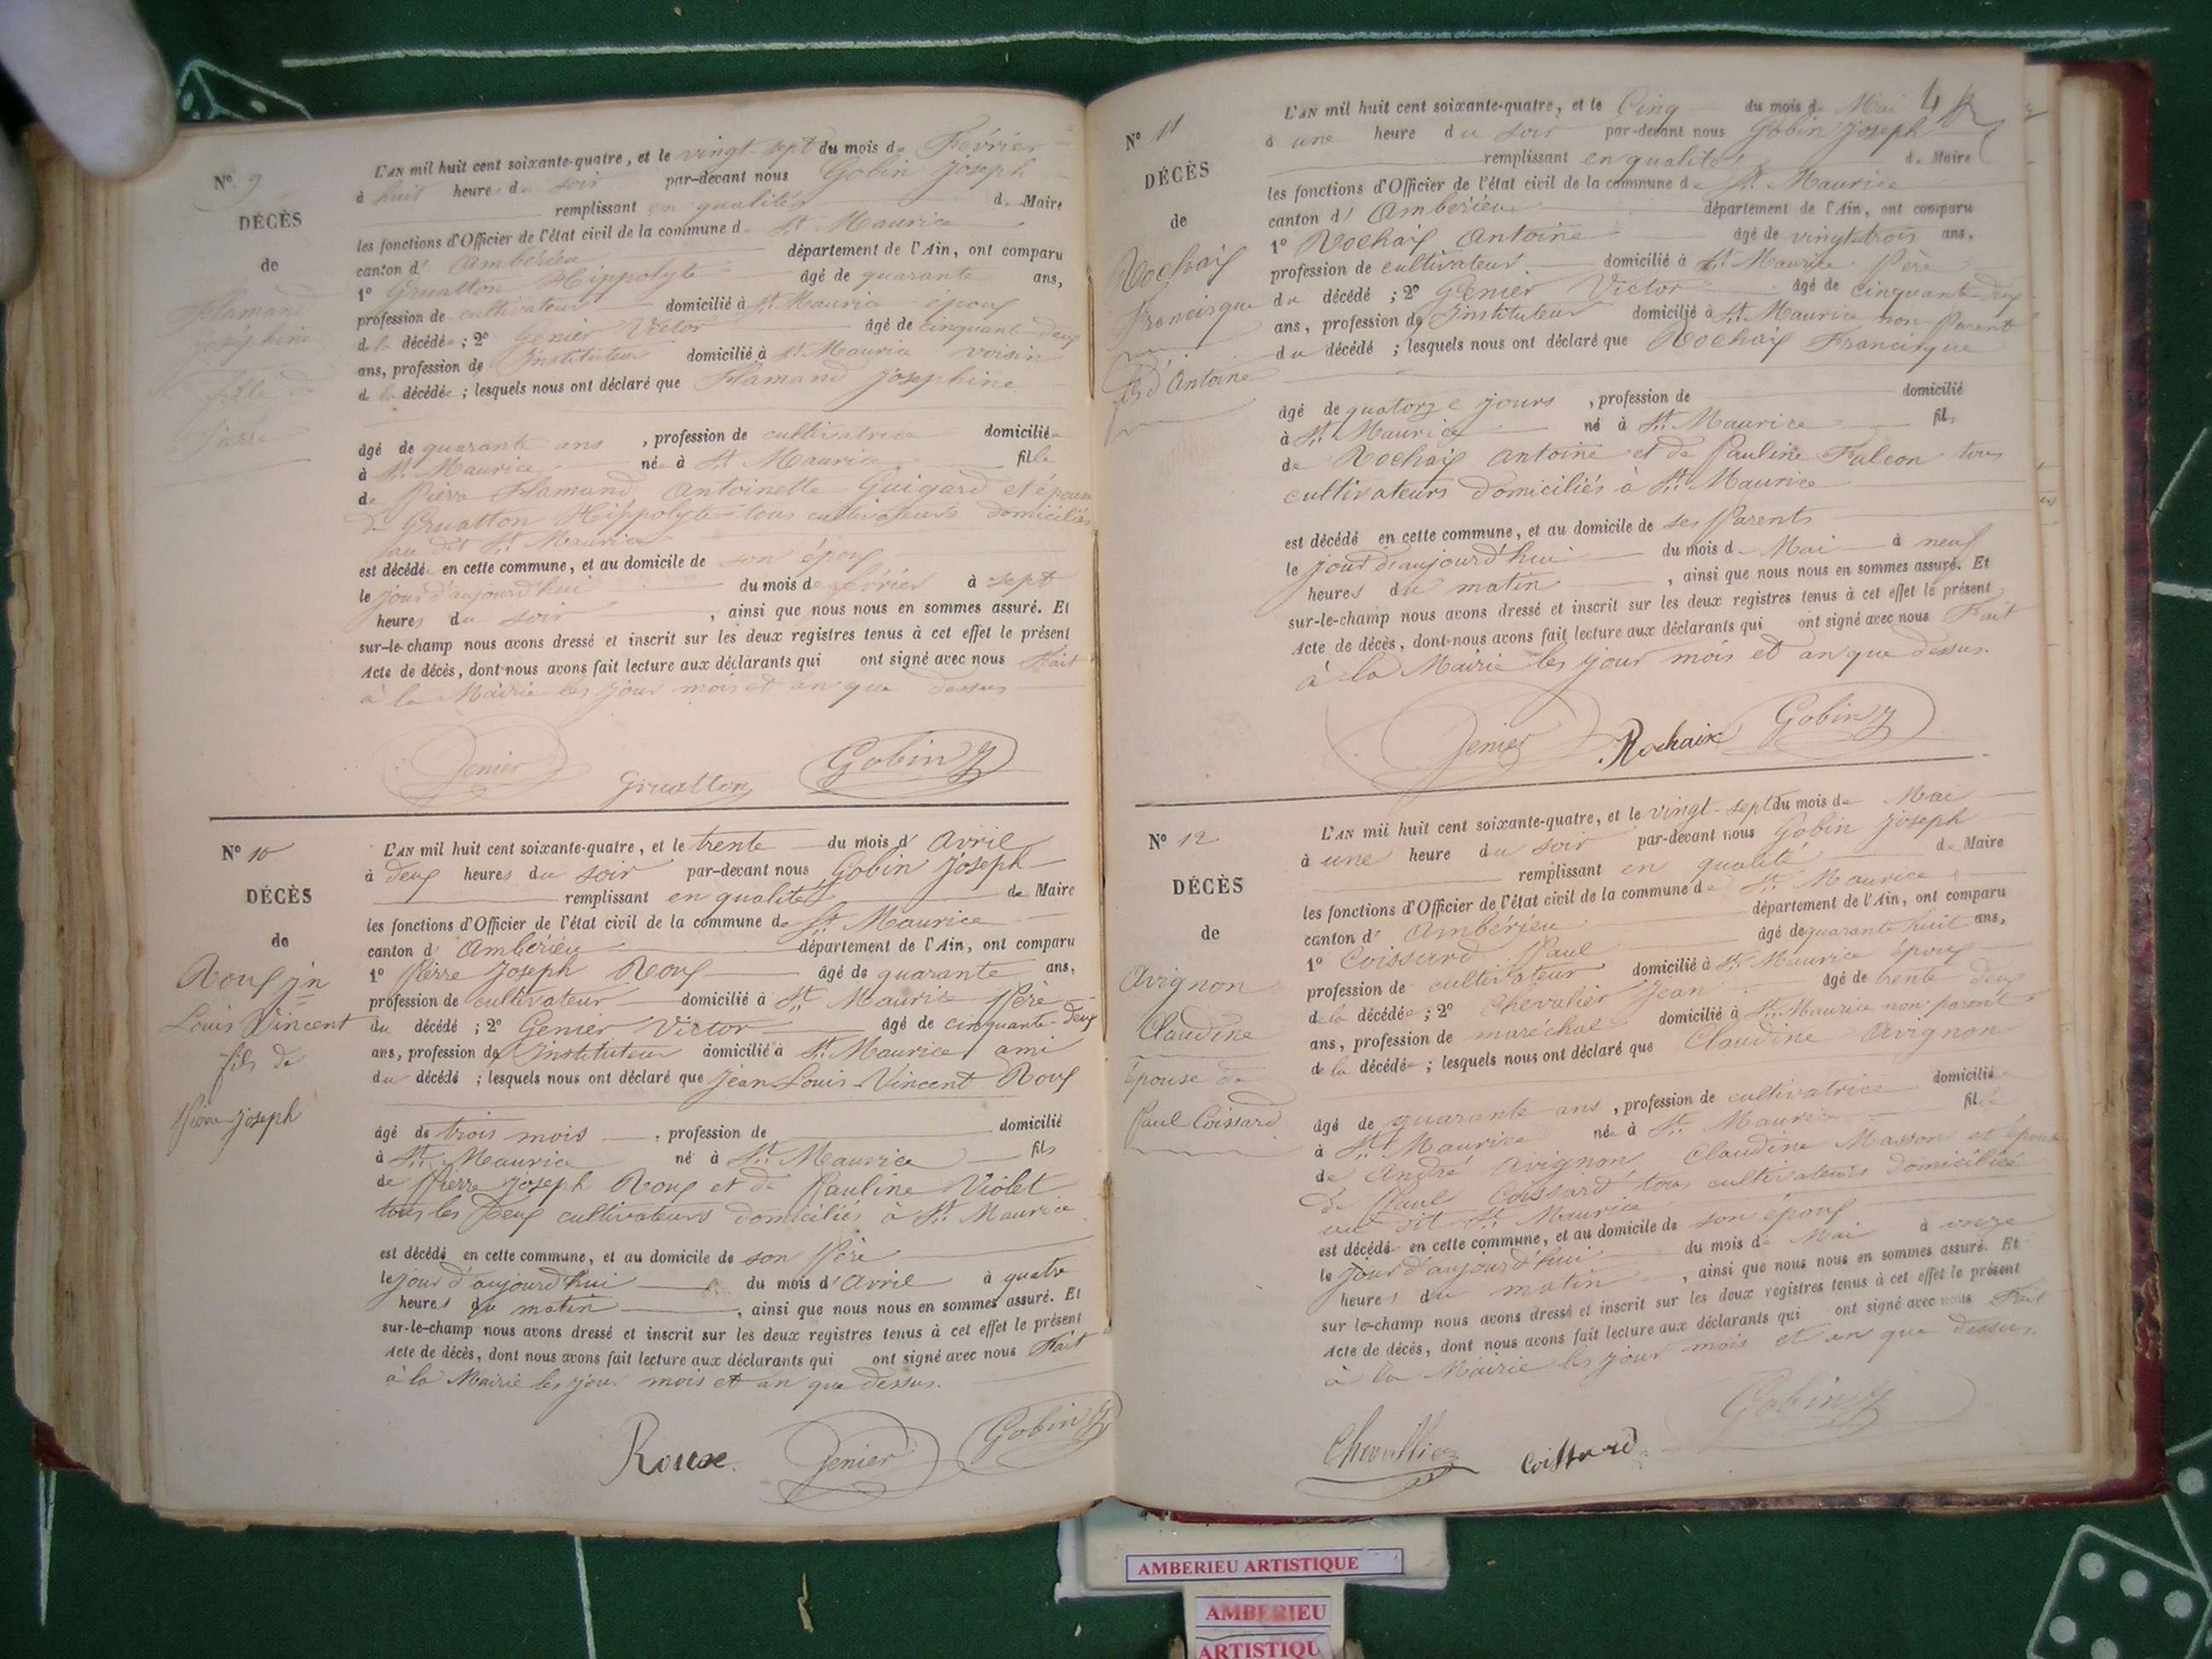 N° 9
DÉCÈS
de
Flamand
Joséphine
fille de
Pierre
L'AN mil huit cent soixante-quatre, et le vingt-sept du mois de Février
à huit heures du soir par-devant nous Gobin Joseph
remplissant en qualité de Maire
les fonctions d'Officier de l'état civil de la commune de St Maurice
canton d' Ambérieu département de l'Ain, ont comparu
1° Gruatton Hippolyte âgé de quarante ans,
profession de cultivateur domicilié à St Maurice époux
de la décédée ; 2° Genier Victor âgé de cinquante-deux
ans, profession de Instituteur domicilié à St Maurice voisin
de la décédée ; lesquels nous ont déclaré que Flamand Josephine
âgé de quarante ans , profession de cultivatrice domiciliée
à St Maurice née à St Maurice fille
de Pierre Flamand, Antoinette Guigard et épouse
de Gruatton Hippolyte tous cultivateurs domiciliés
au dit St Maurice
est décédé en cette commune, et au domicile de son époux
le jour d'aujourd'hui du mois de février à sept
heures du soir , ainsi que nous nous en sommes assuré. Et
sur-le-champ nous avons dressé et inscrit sur les deux registres tenus à cet effet le présent
Acte de décès, dont nous avons fait lecture aux déclarants qui ont signé avec nous Fait
à la Mairie les jour mois et an que dessus
Genier Gruatton Gobin J
N° 10
DÉCÈS
de
Roux Jn
Louis Vincent
fils de
Pierre Joseph
L'AN mil huit cent soixante-quatre, et le trente du mois d' Avril
à deux heures du soir par-devant nous Gobin Joseph
remplissant en qualité de Maire
les fonctions d'Officier de l'état civil de la commune de St Maurice
canton d' Ambérieu département de l'Ain, ont comparu
1° Pierre Joseph Roux âgé de quarante ans,
profession de cultivateur domicilié à St Maurice Père
du décédé ; 2° Genier Victor âgé de cinquante-deux
ans, profession de Instituteur domicilié à St Maurice ami
du décédé ; lesquels nous ont déclaré que Jean Louis Vincent Roux
âgé de trois mois , profession de domicilié
à St Maurice né à St Maurice fils
de Pierre Joseph Roux et de Pauline Violet
tous les deux cultivateurs domiciliés à St Maurice
est décédé en cette commune, et au domicile de son Père
le jour d'aujourd'hui du mois d' Avril à quatre
heures du matin , ainsi que nous nous en sommes assuré. Et
sur-le-champ nous avons dressé et inscrit sur les deux registres tenus à cet effet le présent
Acte de décès, dont nous avons fait lecture aux déclarants qui ont signé avec nous Fait
à la Mairie les jour mois et an que dessus.
Roux Genier Gobin J
N° 11
DÉCÈS
de
Rochaix
Francisque
fils d'Antoine
L'AN mil huit cent soixante-quatre, et le Cinq du mois de Mai 4
à une heure du soir par-devant nous Gobin Joseph
remplissant en qualité de Maire
les fonctions d'Officier de l'état civil de la commune de St Maurice
canton d' Ambérieu département de l'Ain, ont comparu
1° Rochaix Antoine âgé de vingt-trois ans,
profession de cultivateur domicilié à St Maurice Père
du décédé ; 2° Genier Victor âgé de cinquante-deux
ans, profession de Instituteur domicilié à St Maurice non Parent
du décédé ; lesquels nous ont déclaré que Rochaix Francisque
âgé de quatorze jours , profession de domicilié
à St Maurice né à St Maurice fils
de Rochaix Antoine et de Pauline Falcon tous
cultivateurs domiciliés à St Maurice
est décédé en cette commune, et au domicile de ses Parents
le jour d'aujourd'hui du mois de Mai à neuf
heures du matin , ainsi que nous nous en sommes assuré. Et
sur-le-champ nous avons dressé et inscrit sur les deux registres tenus à cet effet le présent
Acte de décès, dont nous avons fait lecture aux déclarants qui ont signé avec nous Fait
à la Mairie les jour mois et an que dessus.
Genier Rochaix Gobin J
N° 12
DÉCÈS
de
Avignon
Claudine
épouse de
Paul Coissard
L'AN mil huit cent soixante-quatre, et le vingt-sept du mois de Mai
à une heure du soir par-devant nous Gobin Joseph
remplissant en qualité de Maire
les fonctions d'Officier de l'état civil de la commune de St Maurice
canton d' Ambérieu département de l'Ain, ont comparu
1° Coissard Paul âgé de quarante huit ans,
profession de cultivateur domicilié à St Maurice époux
de la décédée ; 2° Chevalier Jean âgé de trente deux
ans, profession de maréchal domicilié à St Maurice non parent
de la décédée ; lesquels nous ont déclaré que Claudine Avignon
âgé de quarante ans , profession de cultivatrice domicilié
à St Maurice née à St Maurice fille
de André Avignon, Claudine Masson et épouse
de Paul Coissard tous cultivateurs domiciliés
au dit St Maurice
est décédé en cette commune, et au domicile de son époux
le jour d'aujourd'hui du mois de Mai à onze
heures du matin , ainsi que nous nous en sommes assuré. Et
sur le-champ nous avons dressé et inscrit sur les deux registres tenus à cet effet le présent
Acte de décès, dont nous avons fait lecture aux déclarants qui ont signé avec nous Fait
à la Mairie les jour mois et an que dessus.
Chevallier Coissard Gobin J
AMBERIEU ARTISTIQUE
AMBERIEU
ARTISTIQU